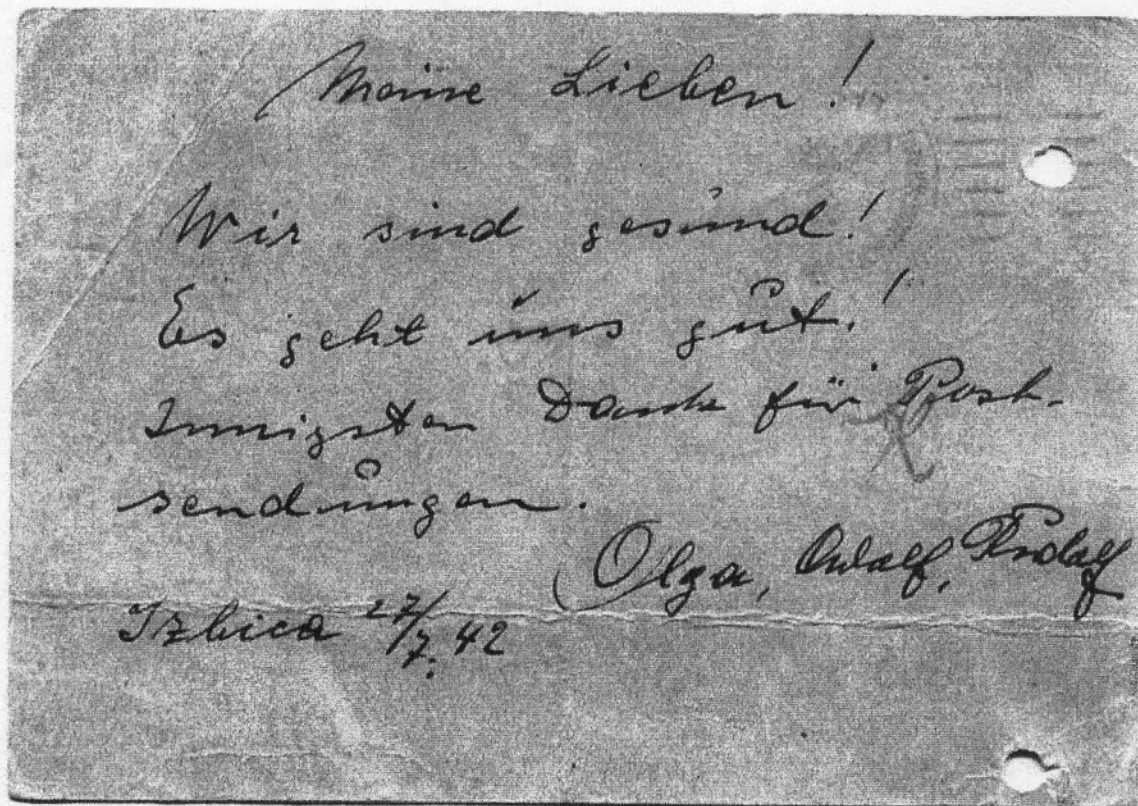 Meine Lieben!
Wir sind gesund!
Es geht uns gut!
Innigsten Dank für Post-
sendungen.
Olga, Adolf, Rudolf
Izbica 27/7. 42